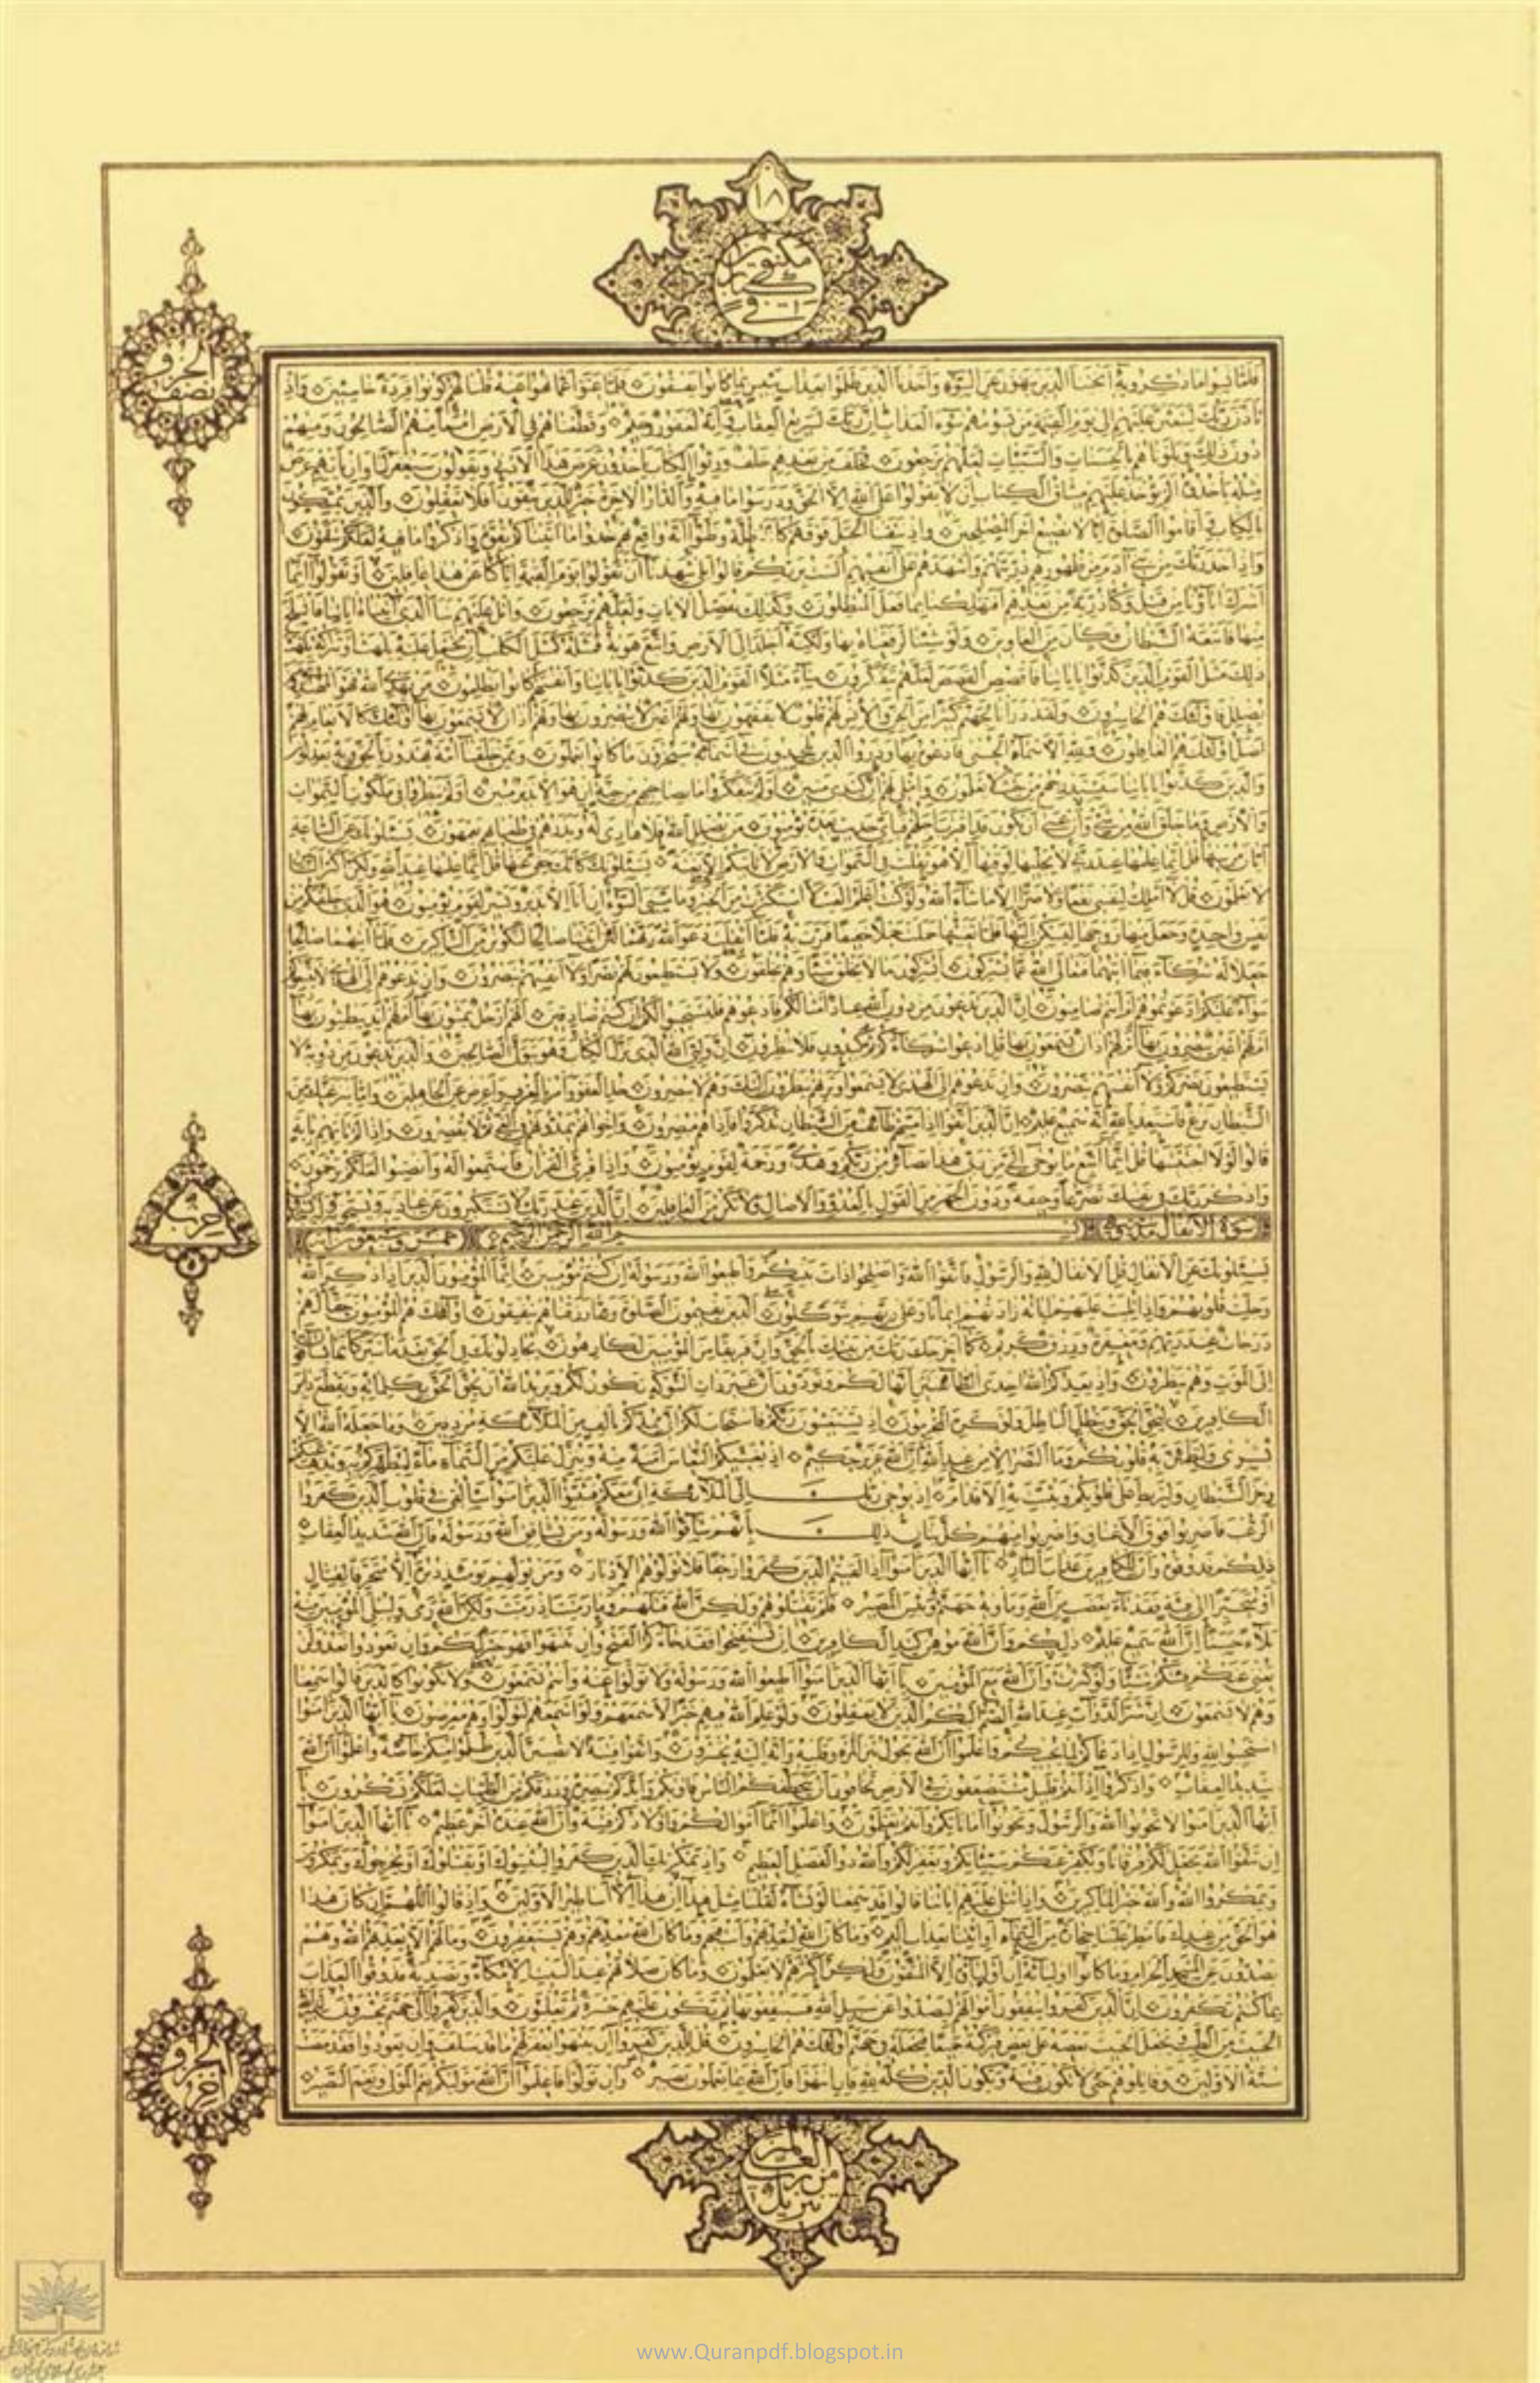 ١٨
مكنون
في كتاب
الحزب
نصف
فلما نسوا ما ذكروا به أنجينا الذين ينهون عن السوء وأخذنا الذين ظلموا بعذاب بئيس بما كانوا يفسقون فلما عتوا عن ما نهوا عنه قلنا لهم كونوا قردة خاسئين وإذ
تأذن ربك ليبعثن عليهم إلى يوم القيمة من يسومهم سوء العذاب إن ربك لسريع العقاب وإنه لغفور رحيم وقطعناهم في الأرض أمما منهم الصالحون ومنهم
دون ذلك وبلوناهم بالحسنات والسيئات لعلهم يرجعون فخلف من بعدهم خلف ورثوا الكتاب يأخذون عرض هذا الأدنى ويقولون سيغفر لنا وإن يأتهم عرض
مثله يأخذوه ألم يؤخذ عليهم ميثاق الكتاب أن لا يقولوا على الله إلا الحق ودرسوا ما فيه والدار الآخرة خير للذين يتقون أفلا تعقلون والذين يمسكون
بالكتاب وأقاموا الصلوة إنا لا نضيع أجر المصلحين وإذ نتقنا الجبل فوقهم كأنه ظلة وظنوا أنه واقع بهم خذوا ما آتيناكم بقوة واذكروا ما فيه لعلكم تتقون
وإذ أخذ ربك من بني آدم من ظهورهم ذريتهم وأشهدهم على أنفسهم ألست بربكم قالوا بلى شهدنا أن تقولوا يوم القيمة إنا كنا عن هذا غافلين أو تقولوا إنما
أشرك آباؤنا من قبل وكنا ذرية من بعدهم أفتهلكنا بما فعل المبطلون وكذلك نفصل الآيات ولعلهم يرجعون واتل عليهم نبأ الذي آتيناه آياتنا فانسلخ
منها فأتبعه الشيطان فكان من الغاوين ولو شئنا لرفعناه بها ولكنه أخلد إلى الأرض واتبع هويه فمثله كمثل الكلب إن تحمل عليه يلهث أو تتركه يلهث
ذلك مثل القوم الذين كذبوا بآياتنا فاقصص القصص لعلهم يتفكرون ساء مثلا القوم الذين كذبوا بآياتنا وأنفسهم كانوا يظلمون من يهد الله فهو المهتدي ومن
يضلل فأولئك هم الخاسرون ولقد ذرأنا لجهنم كثيرا من الجن والإنس لهم قلوب لا يفقهون بها ولهم أعين لا يبصرون بها ولهم آذان لا يسمعون بها أولئك كالأنعام بل هم
أضل أولئك هم الغافلون ولله الأسماء الحسنى فادعوه بها وذروا الذين يلحدون في أسمائه سيجزون ما كانوا يعملون وممن خلقنا أمة يهدون بالحق وبه يعدلون
والذين كذبوا بآياتنا سنستدرجهم من حيث لا يعلمون وأملي لهم إن كيدي متين أولم يتفكروا ما بصاحبهم من جنة إن هو إلا نذير مبين أولم ينظروا في ملكوت السموات
والأرض وما خلق الله من شيء وأن عسى أن يكون قد اقترب أجلهم فبأي حديث بعده يؤمنون من يضلل الله فلا هادي له ويذرهم في طغيانهم يعمهون يسئلونك عن الساعة
أيان مرسيها قل إنما علمها عند ربي لا يجليها لوقتها إلا هو ثقلت في السموات والأرض لا تأتيكم إلا بغتة يسئلونك كأنك حفي عنها قل إنما علمها عند الله ولكن أكثر الناس
لا يعلمون قل لا أملك لنفسي نفعا ولا ضرا إلا ما شاء الله ولو كنت أعلم الغيب لاستكثرت من الخير وما مسني السوء إن أنا إلا نذير وبشير لقوم يؤمنون هو الذي خلقكم من
نفس واحدة وجعل منها زوجها ليسكن إليها فلما تغشيها حملت حملا خفيفا فمرت به فلما أثقلت دعوا الله ربهما لئن آتيتنا صالحا لنكونن من الشاكرين فلما آتيهما صالحا
جعلا له شركاء فيما آتيهما فتعالى الله عما يشركون أيشركون ما لا يخلق شيئا وهم يخلقون ولا يستطيعون لهم نصرا ولا أنفسهم ينصرون وإن تدعوهم إلى الهدى لا يتبعوكم
سواء عليكم أدعوتموهم أم أنتم صامتون إن الذين تدعون من دون الله عباد أمثالكم فادعوهم فليستجيبوا لكم إن كنتم صادقين ألهم أرجل يمشون بها أم لهم أيد يبطشون بها
أم لهم أعين يبصرون بها أم لهم آذان يسمعون بها قل ادعوا شركاءكم ثم كيدون فلا تنظرون إن وليي الله الذي نزل الكتاب وهو يتولى الصالحين والذين تدعون من دونه لا
يستطيعون نصركم ولا أنفسهم ينصرون وإن تدعوهم إلى الهدى لا يسمعوا وتريهم ينظرون إليك وهم لا يبصرون خذ العفو وأمر بالعرف وأعرض عن الجاهلين وإما ينزغنك من
الشيطان نزغ فاستعذ بالله إنه سميع عليم إن الذين اتقوا إذا مسهم طائف من الشيطان تذكروا فإذا هم مبصرون وإخوانهم يمدونهم في الغي ثم لا يقصرون وإذا لم تأتهم بآية
قالوا لولا اجتبيتها قل إنما أتبع ما يوحى إلي من ربي هذا بصائر من ربكم وهدى ورحمة لقوم يؤمنون وإذا قرئ القرآن فاستمعوا له وأنصتوا لعلكم ترحمون
واذكر ربك في نفسك تضرعا وخيفة ودون الجهر من القول بالغدو والآصال ولا تكن من الغافلين إن الذين عند ربك لا يستكبرون عن عبادته ويسبحونه وله يسجدون
حزب
سورة الأنفال مدنية بسم الله الرحمن الرحيم خمس وسبعون آية
يسئلونك عن الأنفال قل الأنفال لله والرسول فاتقوا الله وأصلحوا ذات بينكم وأطيعوا الله ورسوله إن كنتم مؤمنين إنما المؤمنون الذين إذا ذكر الله
وجلت قلوبهم وإذا تليت عليهم آياته زادتهم إيمانا وعلى ربهم يتوكلون الذين يقيمون الصلوة ومما رزقناهم ينفقون أولئك هم المؤمنون حقا لهم
درجات عند ربهم ومغفرة ورزق كريم كما أخرجك ربك من بيتك بالحق وإن فريقا من المؤمنين لكارهون يجادلونك في الحق بعد ما تبين كأنما يساقون
إلى الموت وهم ينظرون وإذ يعدكم الله إحدى الطائفتين أنها لكم وتودون أن غير ذات الشوكة تكون لكم ويريد الله أن يحق الحق بكلماته ويقطع دابر
الكافرين ليحق الحق ويبطل الباطل ولو كره المجرمون إذ تستغيثون ربكم فاستجاب لكم أني ممدكم بألف من الملائكة مردفين وما جعله الله إلا
بشرى ولتطمئن به قلوبكم وما النصر إلا من عند الله إن الله عزيز حكيم إذ يغشيكم النعاس أمنة منه وينزل عليكم من السماء ماء ليطهركم به ويذهب عنكم
رجز الشيطان وليربط على قلوبكم ويثبت به الأقدام إذ يوحي ربك إلى الملائكة أني معكم فثبتوا الذين آمنوا سألقي في قلوب الذين كفروا
الرعب فاضربوا فوق الأعناق واضربوا منهم كل بنان ذلك بأنهم شاقوا الله ورسوله ومن يشاقق الله ورسوله فإن الله شديد العقاب
ذلكم فذوقوه وأن للكافرين عذاب النار يا أيها الذين آمنوا إذا لقيتم الذين كفروا زحفا فلا تولوهم الأدبار ومن يولهم يومئذ دبره إلا متحرفا لقتال
أو متحيزا إلى فئة فقد باء بغضب من الله ومأويه جهنم وبئس المصير فلم تقتلوهم ولكن الله قتلهم وما رميت إذ رميت ولكن الله رمى وليبلي المؤمنين منه
بلاء حسنا إن الله سميع عليم ذلكم وأن الله موهن كيد الكافرين إن تستفتحوا فقد جاءكم الفتح وإن تنتهوا فهو خير لكم وإن تعودوا نعد ولن
تغني عنكم فئتكم شيئا ولو كثرت وأن الله مع المؤمنين يا أيها الذين آمنوا أطيعوا الله ورسوله ولا تولوا عنه وأنتم تسمعون ولا تكونوا كالذين قالوا سمعنا
وهم لا يسمعون إن شر الدواب عند الله الصم البكم الذين لا يعقلون ولو علم الله فيهم خيرا لأسمعهم ولو أسمعهم لتولوا وهم معرضون يا أيها الذين آمنوا
استجيبوا لله وللرسول إذا دعاكم لما يحييكم واعلموا أن الله يحول بين المرء وقلبه وأنه إليه تحشرون واتقوا فتنة لا تصيبن الذين ظلموا منكم خاصة واعلموا أن الله
شديد العقاب واذكروا إذ أنتم قليل مستضعفون في الأرض تخافون أن يتخطفكم الناس فآويكم وأيدكم بنصره ورزقكم من الطيبات لعلكم تشكرون يا
أيها الذين آمنوا لا تخونوا الله والرسول وتخونوا أماناتكم وأنتم تعلمون واعلموا أنما أموالكم وأولادكم فتنة وأن الله عنده أجر عظيم يا أيها الذين آمنوا
إن تتقوا الله يجعل لكم فرقانا ويكفر عنكم سيئاتكم ويغفر لكم والله ذو الفضل العظيم وإذ يمكر بك الذين كفروا ليثبتوك أو يقتلوك أو يخرجوك ويمكرون
ويمكر الله والله خير الماكرين وإذا تتلى عليهم آياتنا قالوا قد سمعنا لو نشاء لقلنا مثل هذا إن هذا إلا أساطير الأولين وإذ قالوا اللهم إن كان هذا
هو الحق من عندك فأمطر علينا حجارة من السماء أو ائتنا بعذاب أليم وما كان الله ليعذبهم وأنت فيهم وما كان الله معذبهم وهم يستغفرون وما لهم ألا يعذبهم الله وهم
يصدون عن المسجد الحرام وما كانوا أولياءه إن أولياؤه إلا المتقون ولكن أكثرهم لا يعلمون وما كان صلاتهم عند البيت إلا مكاء وتصدية فذوقوا العذاب
بما كنتم تكفرون إن الذين كفروا ينفقون أموالهم ليصدوا عن سبيل الله فسينفقونها ثم تكون عليهم حسرة ثم يغلبون والذين كفروا إلى جهنم يحشرون ليميز الله
الخبيث من الطيب ويجعل الخبيث بعضه على بعض فيركمه جميعا فيجعله في جهنم أولئك هم الخاسرون قل للذين كفروا إن ينتهوا يغفر لهم ما قد سلف وإن يعودوا فقد مضت
سنة الأولين وقاتلوهم حتى لا تكون فتنة ويكون الدين كله لله فإن انتهوا فإن الله بما يعملون بصير وإن تولوا فاعلموا أن الله موليكم نعم المولى ونعم النصير
الحزب
آخر
تنزيل
من رب
العالمين
www.Quranpdf.blogspot.in